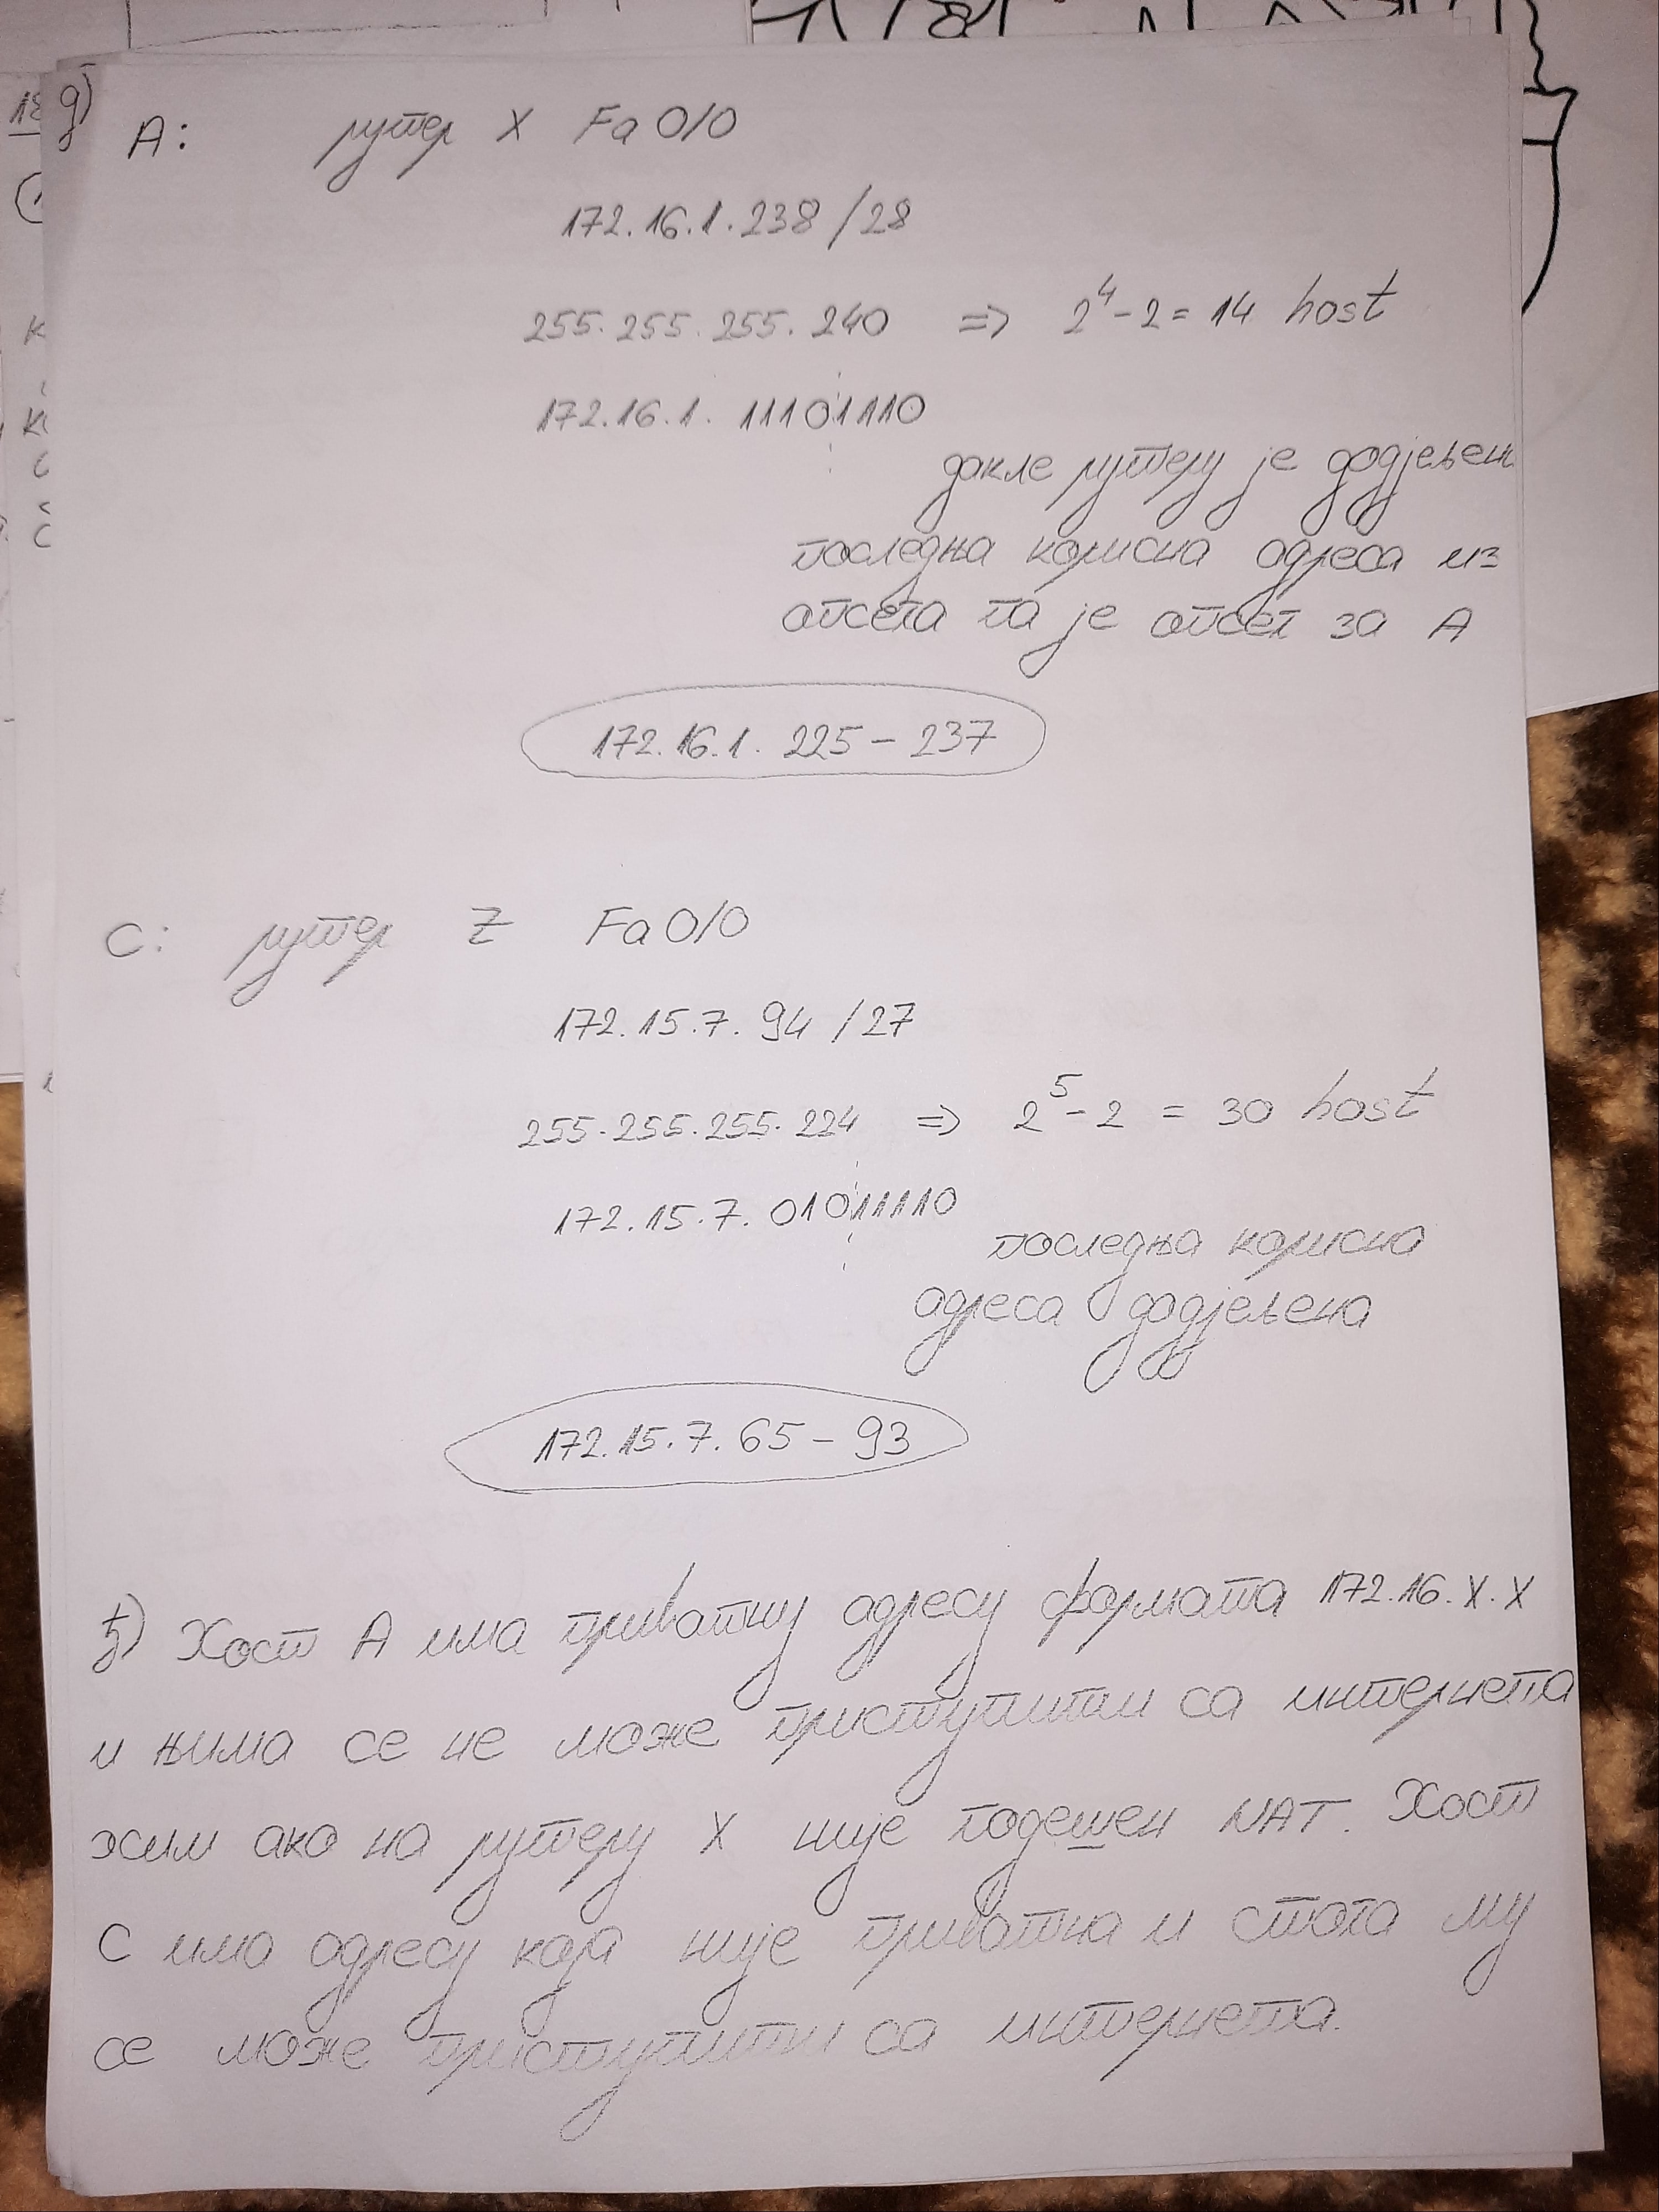 д)
A: рутер X Fa 0/0
172.16.1.238 /28
255.255.255.240 => 2^4 - 2 = 14 host
172.16.1. 11101110
дакле рутеру је додјељен
последња корисна адреса из
опсега па је опсег за A
172.16.1. 225 - 237
C: рутер Z Fa 0/0
172.15.7. 94 /27
255.255.255.224 => 2^5 - 2 = 30 host
172.15.7. 01011110
последња корисна
адреса додјељена
172.15.7. 65 - 93
ђ) Хост A има приватну адресу формата 172.16.X.X
и њима се не може приступити са интернета
ако на рутеру X није подешен NAT. Хост
C има адресу која није приватна и стога му
се може приступити са интернета.